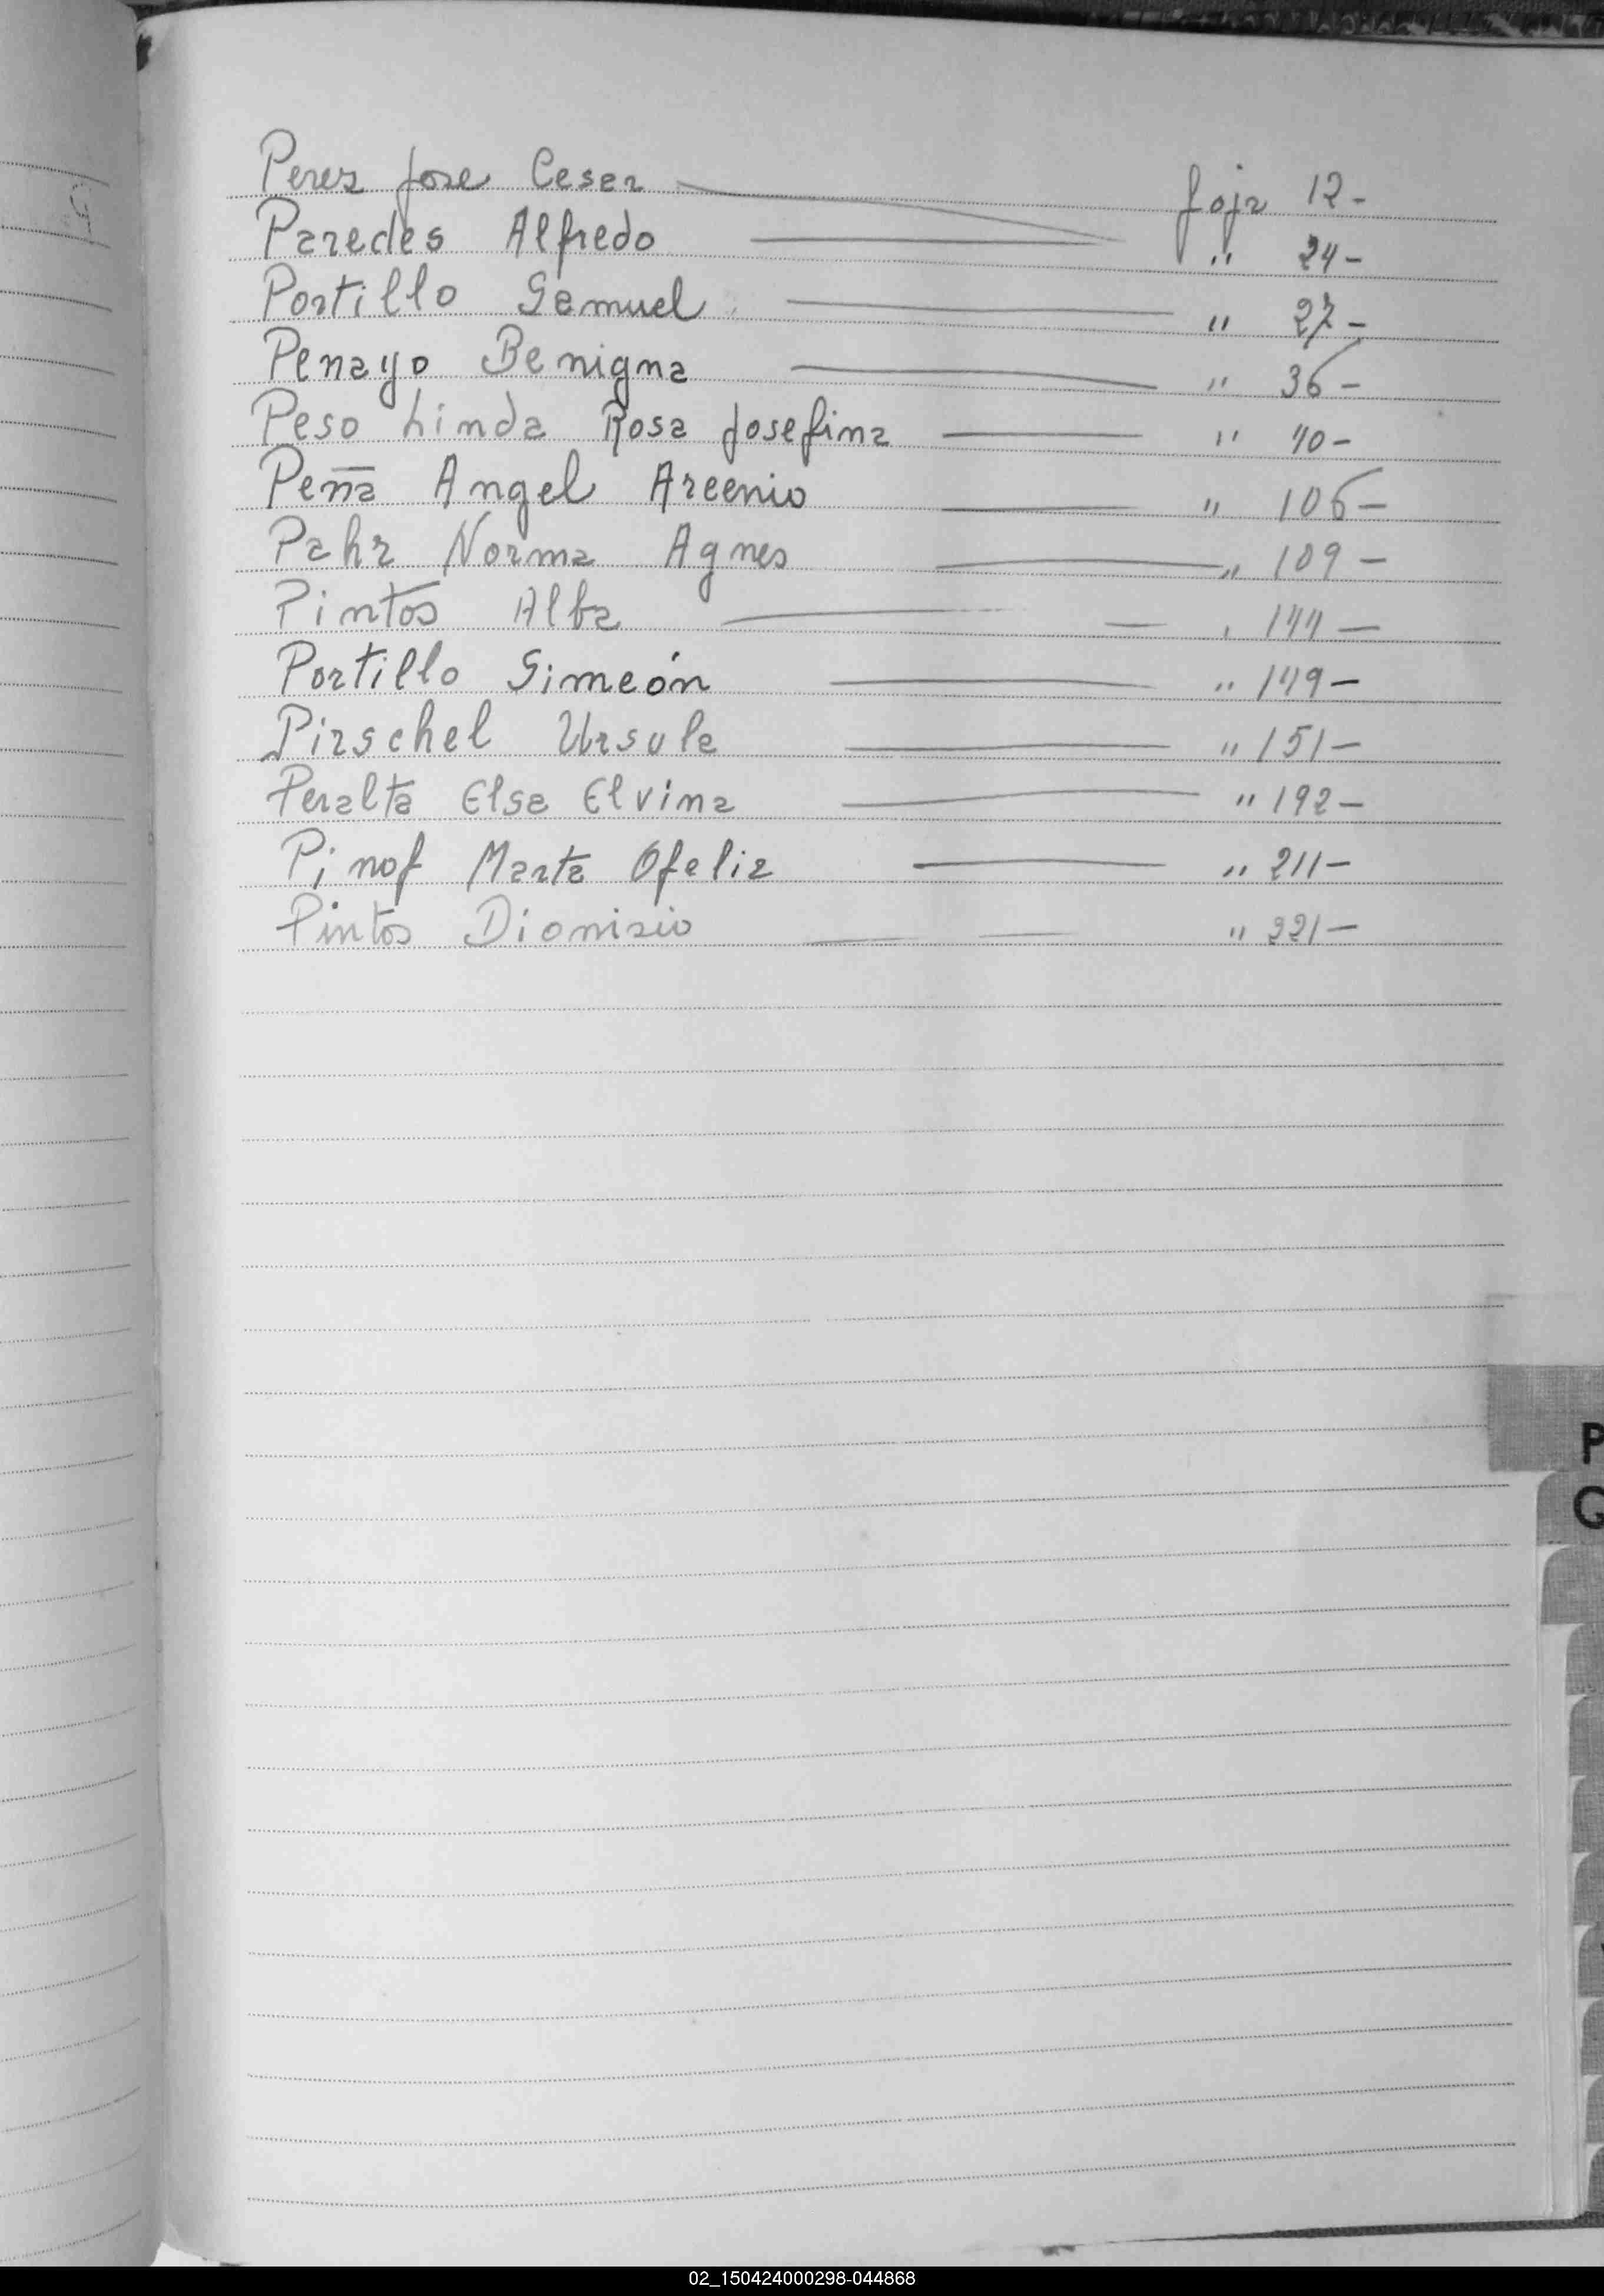 Perez Jose Cesar foja 12-
Paredes Alfredo " 24-
Portillo Samuel " 27-
Penayo Benigna " 36-
Peso Linda Rosa Josefina " 40-
Peña Angel Arcenio " 106-
Pahr Norma Agnes " 109-
Pintos Alba " 144-
Portillo Simeón " 149-
Pirschel Ursula " 151-
Peralta Elsa Elvina " 192-
Pinof Marta Ofelia " 211-
Pintos Dionisio " 221-
P
Q
02_150424000298-044868